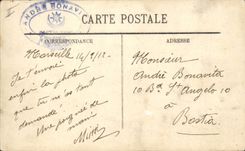 ANDRÉ BONAVI
CARTE POSTALE
CORRESPONDANCE
ADRESSE
Marseille 14/9/12
Je t'envoie
enfin la photo
que tu m'as tant
demandé
Une poignée de
main
Monsieur
André Bonavita
10 Bd St Angelo 10
à
Bastia